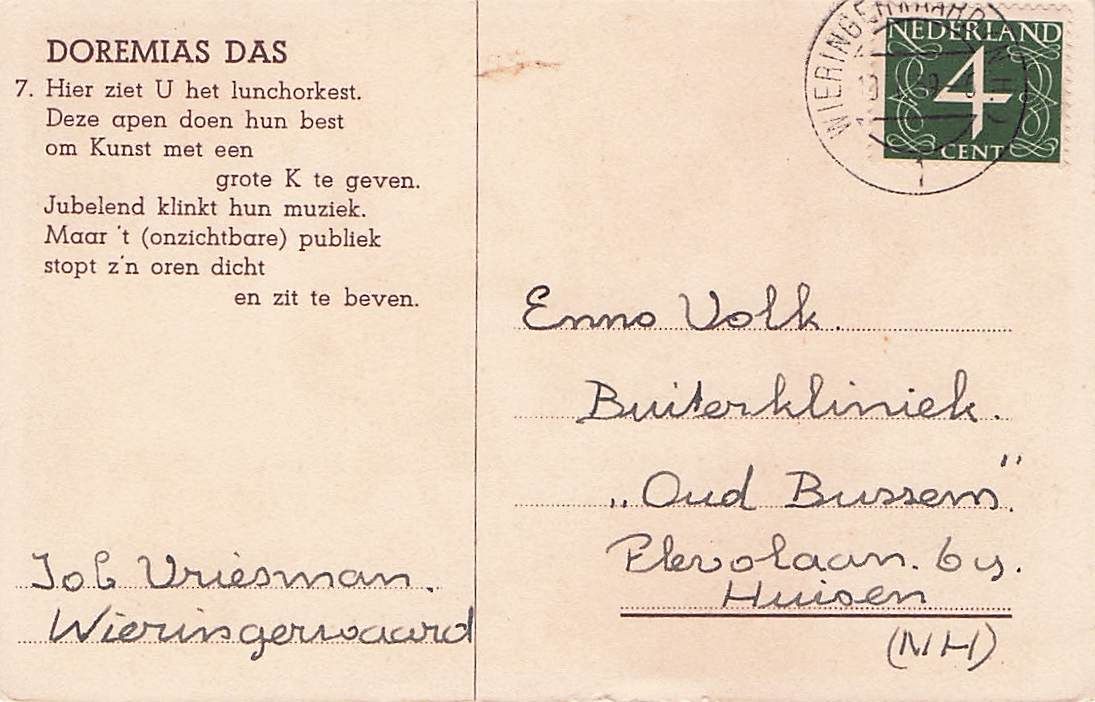 DOREMIAS DAS
7. Hier ziet U het lunchorkest.
Deze apen doen hun best
om Kunst met een
grote K te geven.
Jubelend klinkt hun muziek.
Maar 't (onzichtbare) publiek
stopt z'n oren dicht
en zit te beven.
Job Vriesman.
Wieringerwaard
NEDERLAND
4
CENT
WIERINGERWAARD
1
Enno Volk.
Buitenkliniek.
„Oud Bussem".
Flevolaan. by.
Huisen
(NH)